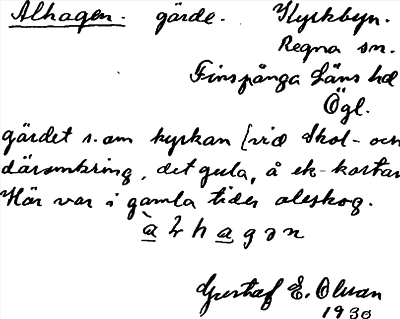 Alhagen. gärde. Kyrkbyn.
Regna sn.
Finspånga Läns hd
Ögl.
gärdet s. om kyrkan [vid Skol- och
däromkring, det gula, å ek-kartan
Här var i gamla tider aleskog.
àlhagən
Gustaf E. Olsson
1930